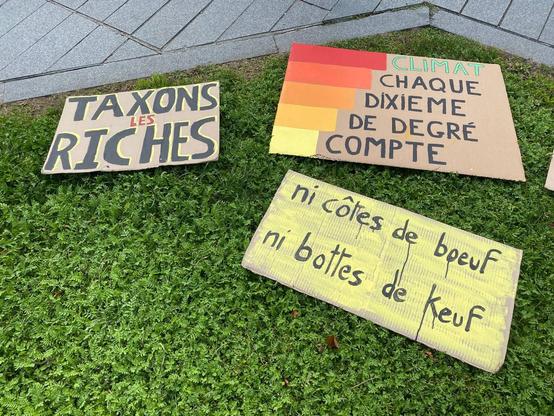 TAXONS
LES
RICHES
CLIMAT
CHAQUE
DIXIEME
DE DEGRÉ
COMPTE
ni côtes de bœuf
ni bottes de keuf